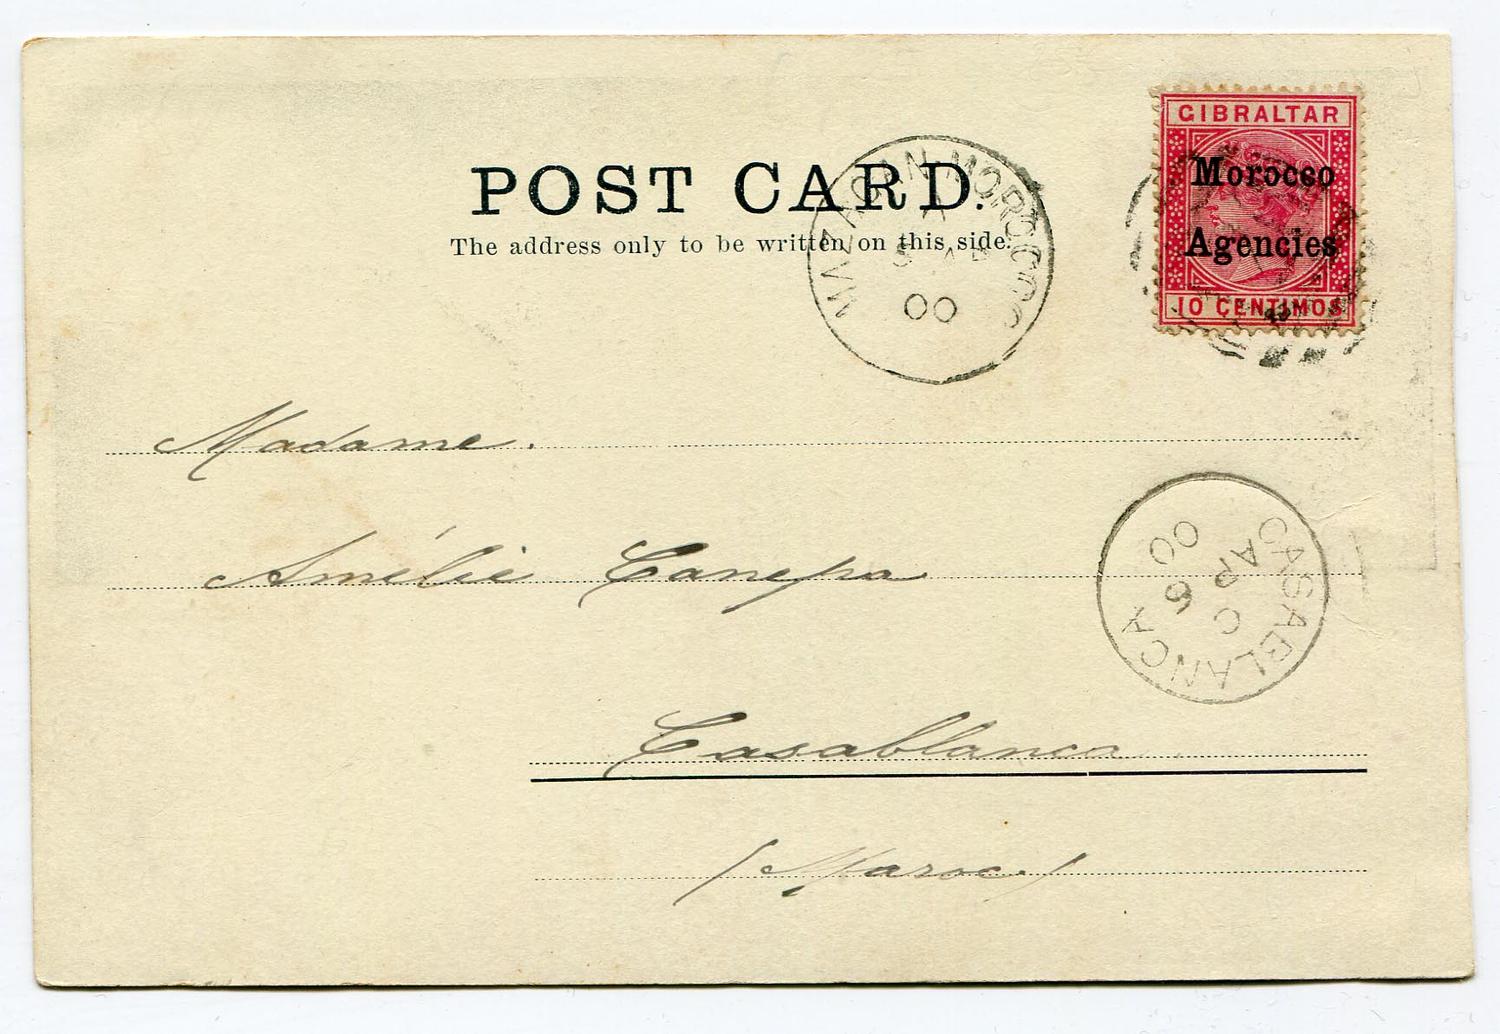 GIBRALTAR
Morocco
Agencies
10 CENTIMOS
POST CARD.
The address only to be written on this side.
MAZAGAN-MOROCCO
A
5 AP
00
Madame.
Amélie Canepa
CASABLANCA
C
AP 6
00
Casablanca
(Maroc)